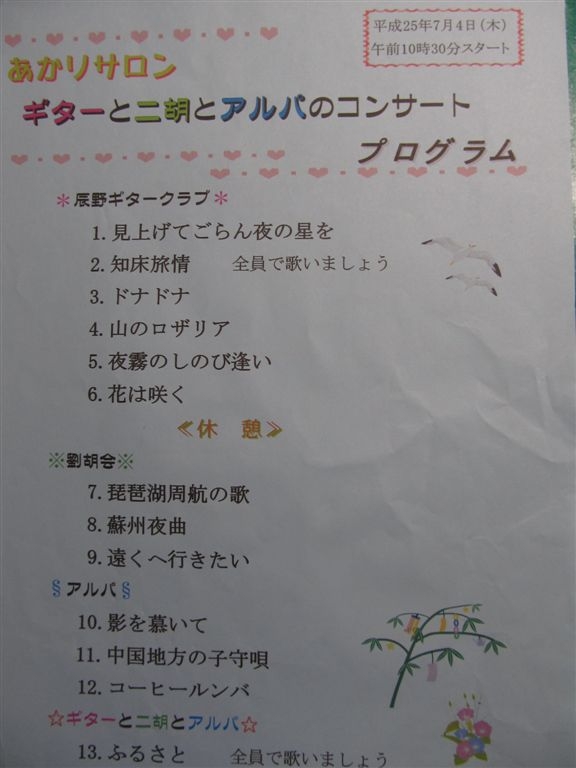 平成25年7月4日(木)
午前10時30分スタート
あかりサロン
ギターと二胡とアルパのコンサート
プログラム
*辰野ギタークラブ*
1. 見上げてごらん夜の星を
2. 知床旅情 全員で歌いましょう
3. ドナドナ
4. 山のロザリア
5. 夜霧のしのび逢い
6. 花は咲く
≪休 憩≫
※劉胡会※
7. 琵琶湖周航の歌
8. 蘇州夜曲
9. 遠くへ行きたい
§アルパ§
10. 影を慕いて
11. 中国地方の子守唄
12. コーヒールンバ
☆ギターと二胡とアルパ☆
13. ふるさと 全員で歌いましょう